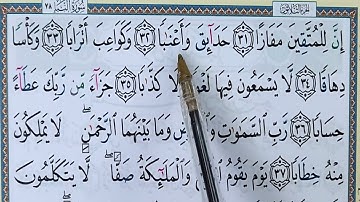 الجزء الثلاثون سورة النبأ ٧٨
إِنَّ لِلْمُتَّقِينَ مَفَازًا ٣١ حَدَآئِقَ وَأَعْنَٰبًا ٣٢ وَكَوَاعِبَ أَتْرَابًا ٣٣ وَكَأْسًا
دِهَاقًا ٣٤ لَّا يَسْمَعُونَ فِيهَا لَغْوًا وَلَا كِذَّٰبًا ٣٥ جَزَآءً مِّن رَّبِّكَ عَطَآءً
حِسَابًا ٣٦ رَّبِّ ٱلسَّمَٰوَٰتِ وَٱلْأَرْضِ وَمَا بَيْنَهُمَا ٱلرَّحْمَٰنِ ۖ لَا يَمْلِكُونَ
مِنْهُ خِطَابًا ٣٧ يَوْمَ يَقُومُ ٱلرُّوحُ وَٱلْمَلَٰٓئِكَةُ صَفًّا ۖ لَّا يَتَكَلَّمُونَ